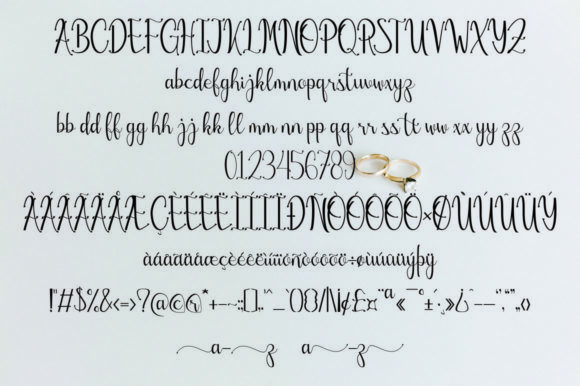 ABCDEFGHIJKLMNOPQRSTUVWXYZ
abcdefghijklmnopqrstuvwxyz
bb dd ff gg hh jj kk ll mm nn pp qq rr ss tt ww xx yy zz
0123456789
ÀÁÂÃÄÅÆÇÈÉÊËÌÍÎÏÐÑÒÓÔÕÖ×ØÙÚÛÜÝ
àáâãäåæçèéêëìíîïðñòóôõö÷øùúûüýþÿ
a-z a-z